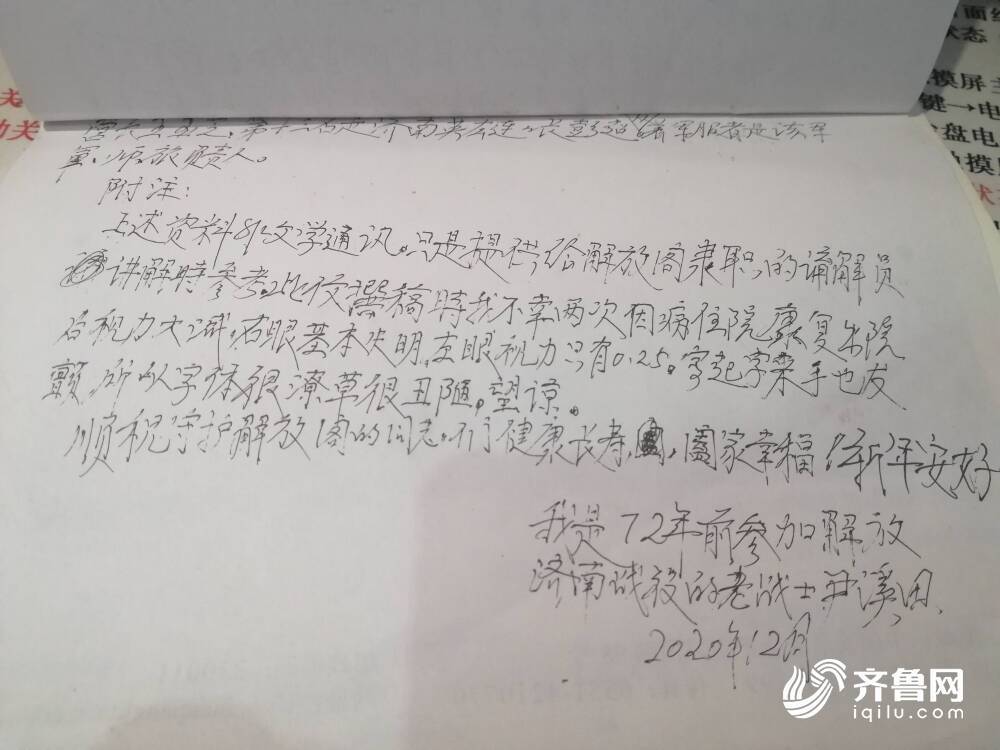 第十三 济南英雄 着军服者是该军
军、师、旅负责人。
附注：
上述资料非文学通讯。只是提供给解放阁兼职的讲解员
讲解时参考。此次撰稿时我不幸两次因病住院康复出院
后视力大减，右眼基本失明，左眼视力只有0.25。写起字来手也发
颤，所以字体很潦草很丑陋。望谅。
顺祝守护解放阁的同志们健康长寿，阖家幸福！新年安好
我是72年前参加解放
济南战役的老战士
2020年12月
齐鲁网
iqilu.com
面
状态
摸屏
键→电
盘电
摸
状
关
动关